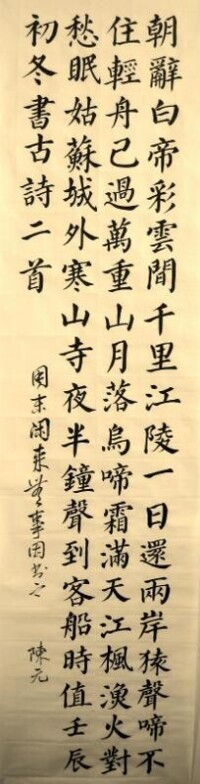 朝辭白帝彩雲間千里江陵一日還兩岸猿聲啼不
住輕舟已過萬重山月落烏啼霜滿天江楓漁火對
愁眠姑蘇城外寒山寺夜半鐘聲到客船時值壬辰
初冬書古詩二首
周末閑來無事因書之 陳元